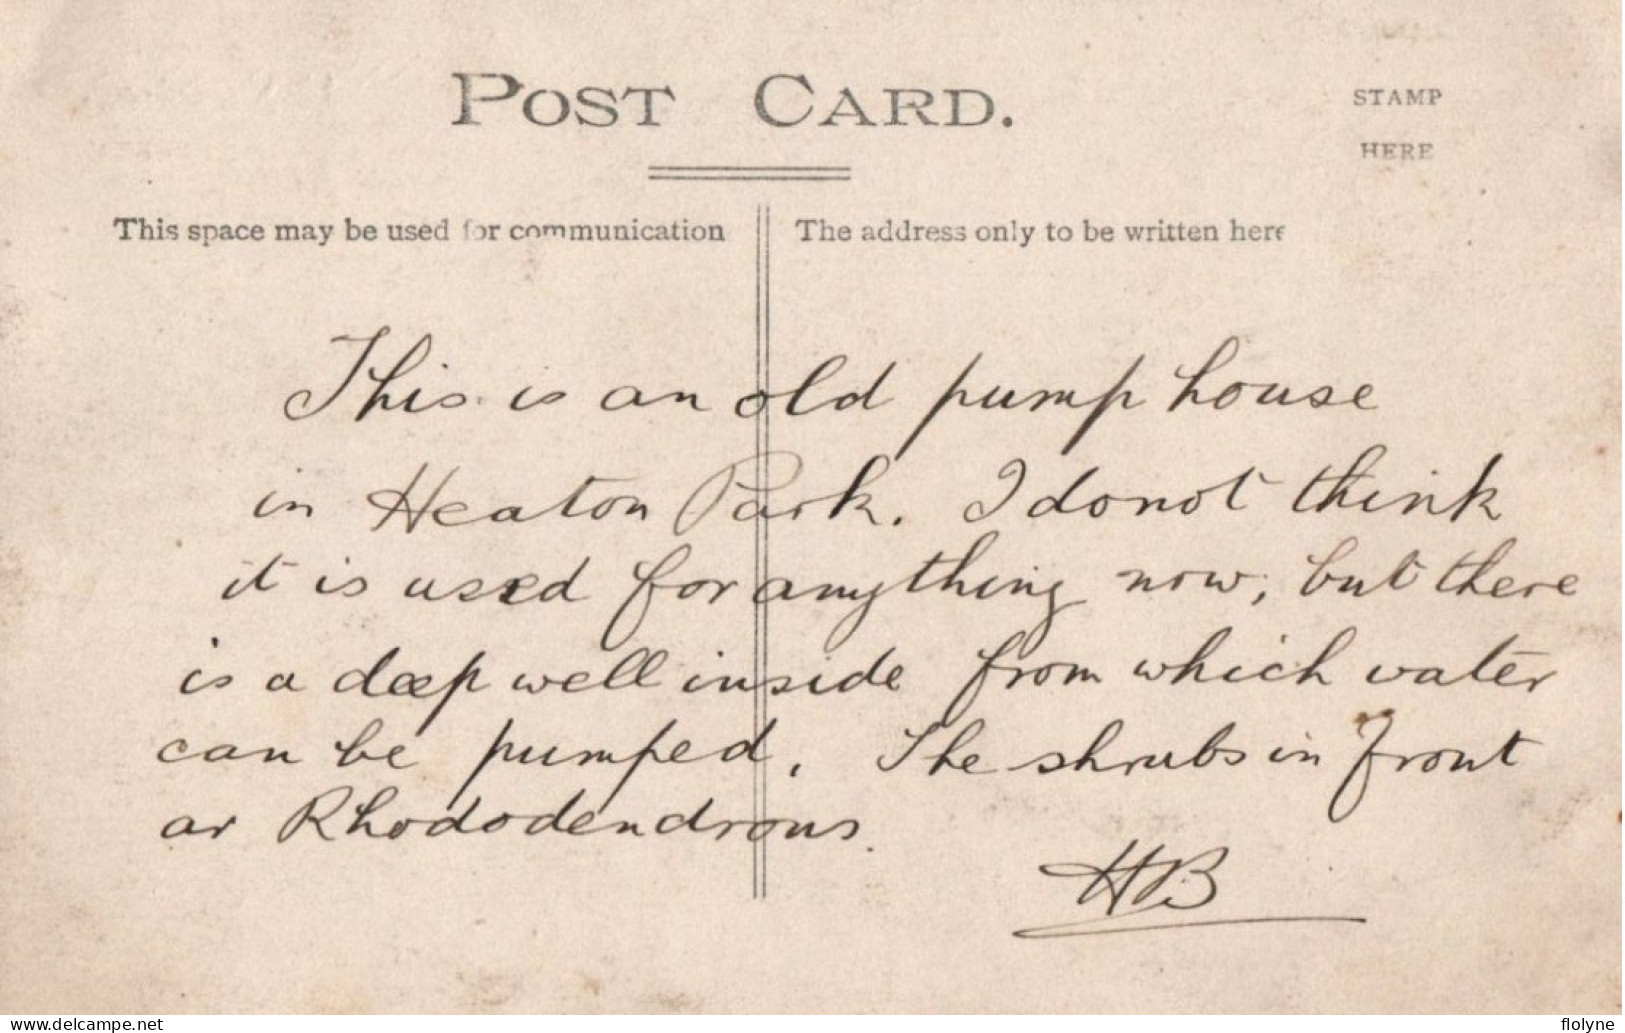 POST CARD.
STAMP
HERE
This space may be used for communication
The address only to be written here
This is an old pump house
in Heaton Park. I do not think
it is used for anything now, but there
is a deep well inside from which water
can be pumped. The shrubs in front
ar Rhododendrons.
HB
www.delcampe.net
flolyne